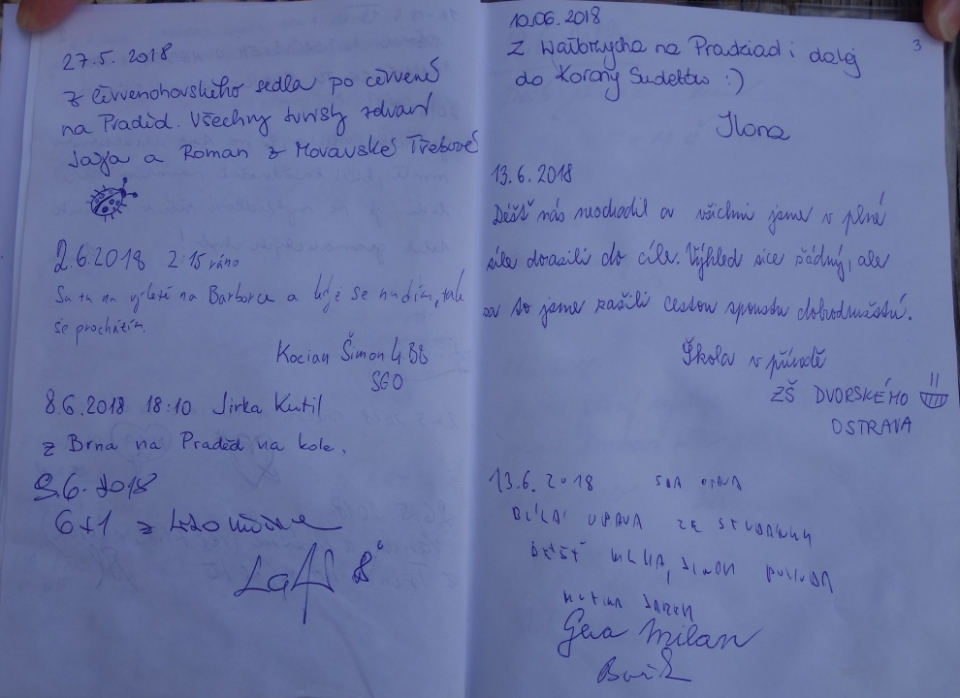 27.5. 2018
z Červenohorského sedla po červené
na Praděd. Všechny turisty zdraví
Jája a Roman z Moravské Třebové
2.6.2018 2:15 ráno
Su tu na výletě na Barborce a když se nudím, tak
se procházím.
Kocian Šimon 4.BB
SGO
8.6.2018 18:10 Jirka Kutil
z Brna na Praděd na kole.
9.6.2018
6+1 z
10.06.2018
3
Z Wałbrzycha na Pradziad i dalej
do Korony Sudetów :)
Ilona
13.6.2018
Déšť nás neochodil a všichni jsme v plné
síle dorazili do cíle. Výhled sice žádný, ale
za to jsme zažili cestou spoustu dobrodružství.
Škola v přírodě
ZŠ DVORSKÉHO
OSTRAVA
13.6.2018
BÍLÁ OPAVA ZE STUDÁNKY
DÉŠŤ MLHA, JINAK POHODA
Gera Milan